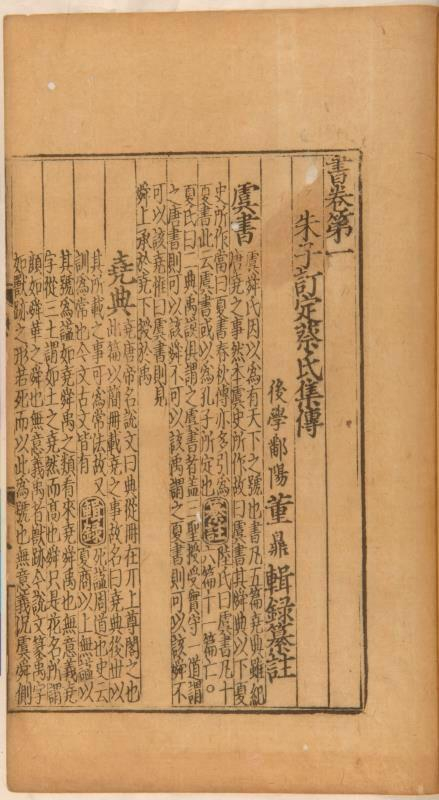 書卷第一
朱子訂定蔡氏集傳
後學鄱陽董鼎輯錄纂註
虞書
虞舜氏因以為有天下之號也書凡五篇堯典雖紀
唐堯之事然本虞史所作故曰虞書其舜典以下夏
史所作當曰夏書春秋傳亦多引為
夏書此云虞書或以為孔子所定也
纂註
陸氏曰虞書凡十
六篇十一篇亡○
夏氏曰二典禹謨俱謂之虞書者蓋三聖授受實守一道謂
之唐書則可以該舜不可以該禹謂之夏書則可以該舜不
可以該堯惟曰虞書則見
舜上承於堯下授於禹
堯典
堯唐帝名說文曰典從冊在丌上尊閣之也
此篇以簡冊載堯之事故名曰堯典後世以
其所載之事可為常法故又
訓為常也今文古文皆有
輯錄
死謚周道也史云
夏商以上無謚以
其號為謚如堯舜禹之類看來堯舜禹也無意義堯
字從三土謂如土之堯然而高也舜只是花名所謂
顏如舜華之舜也無意義禹者獸跡今說文篆禹字
如獸跡之形若死而以此為號也無意義況虞舜側